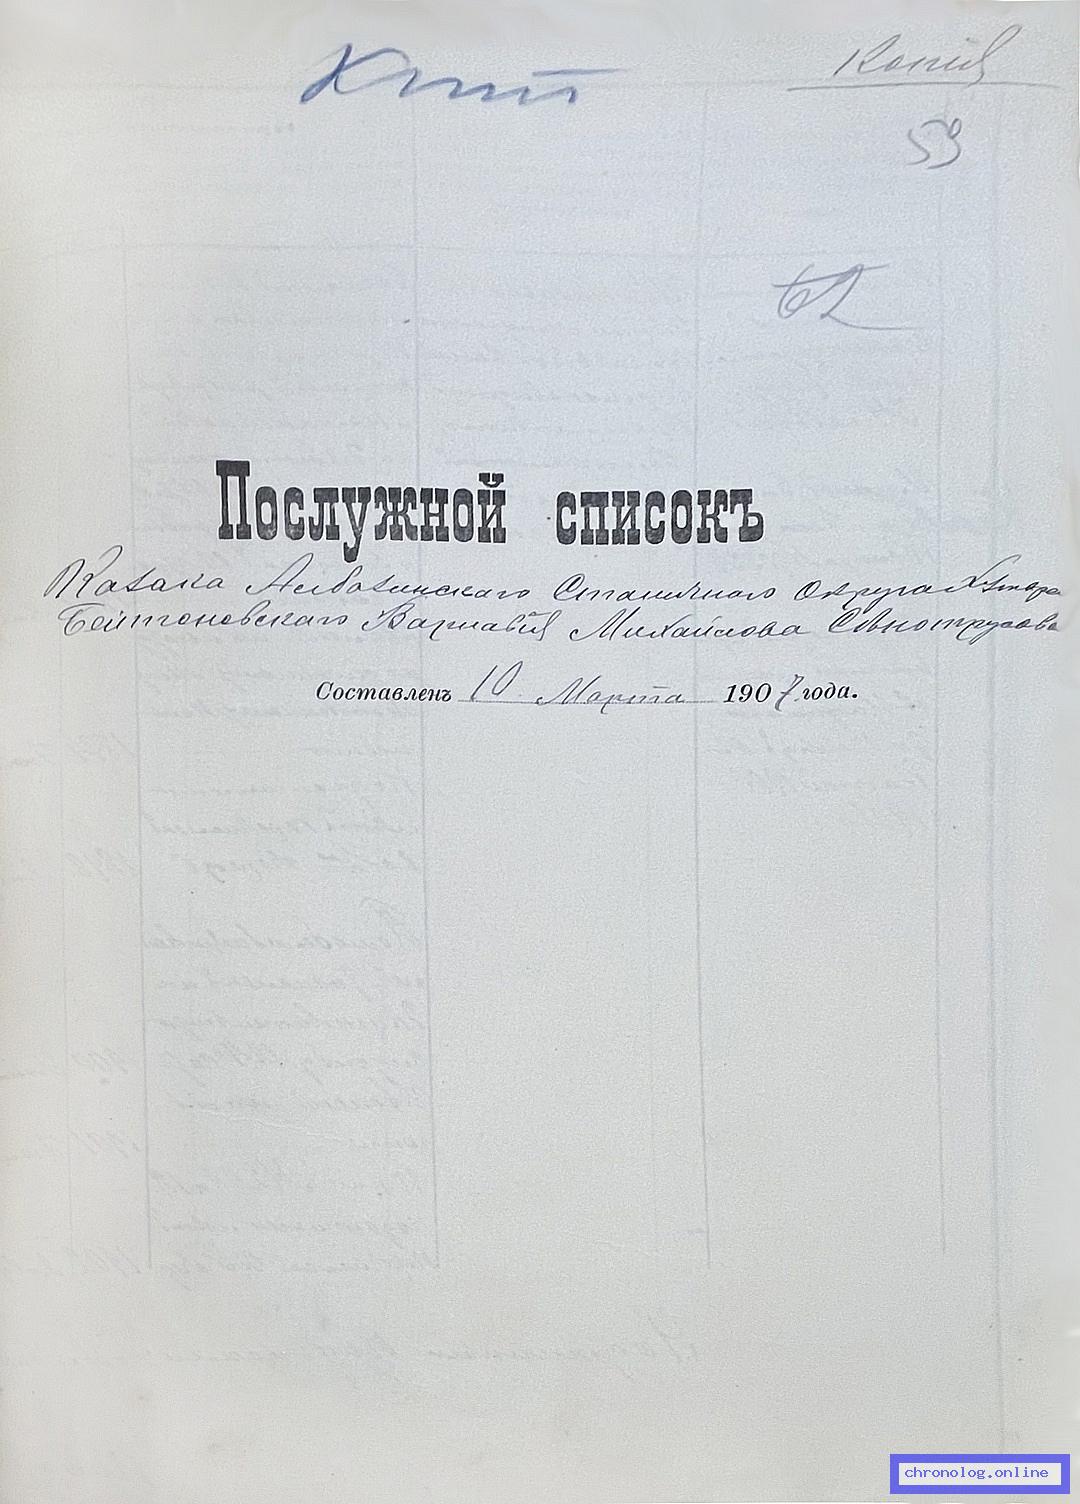 Копія
59
Послужной списокъ
Казака Албазинскаго Станичнаго Округа Хутора
Бейтоновскаго Варнавы Михайлова
Составленъ 10 Марта 1907 года.
chronolog.online